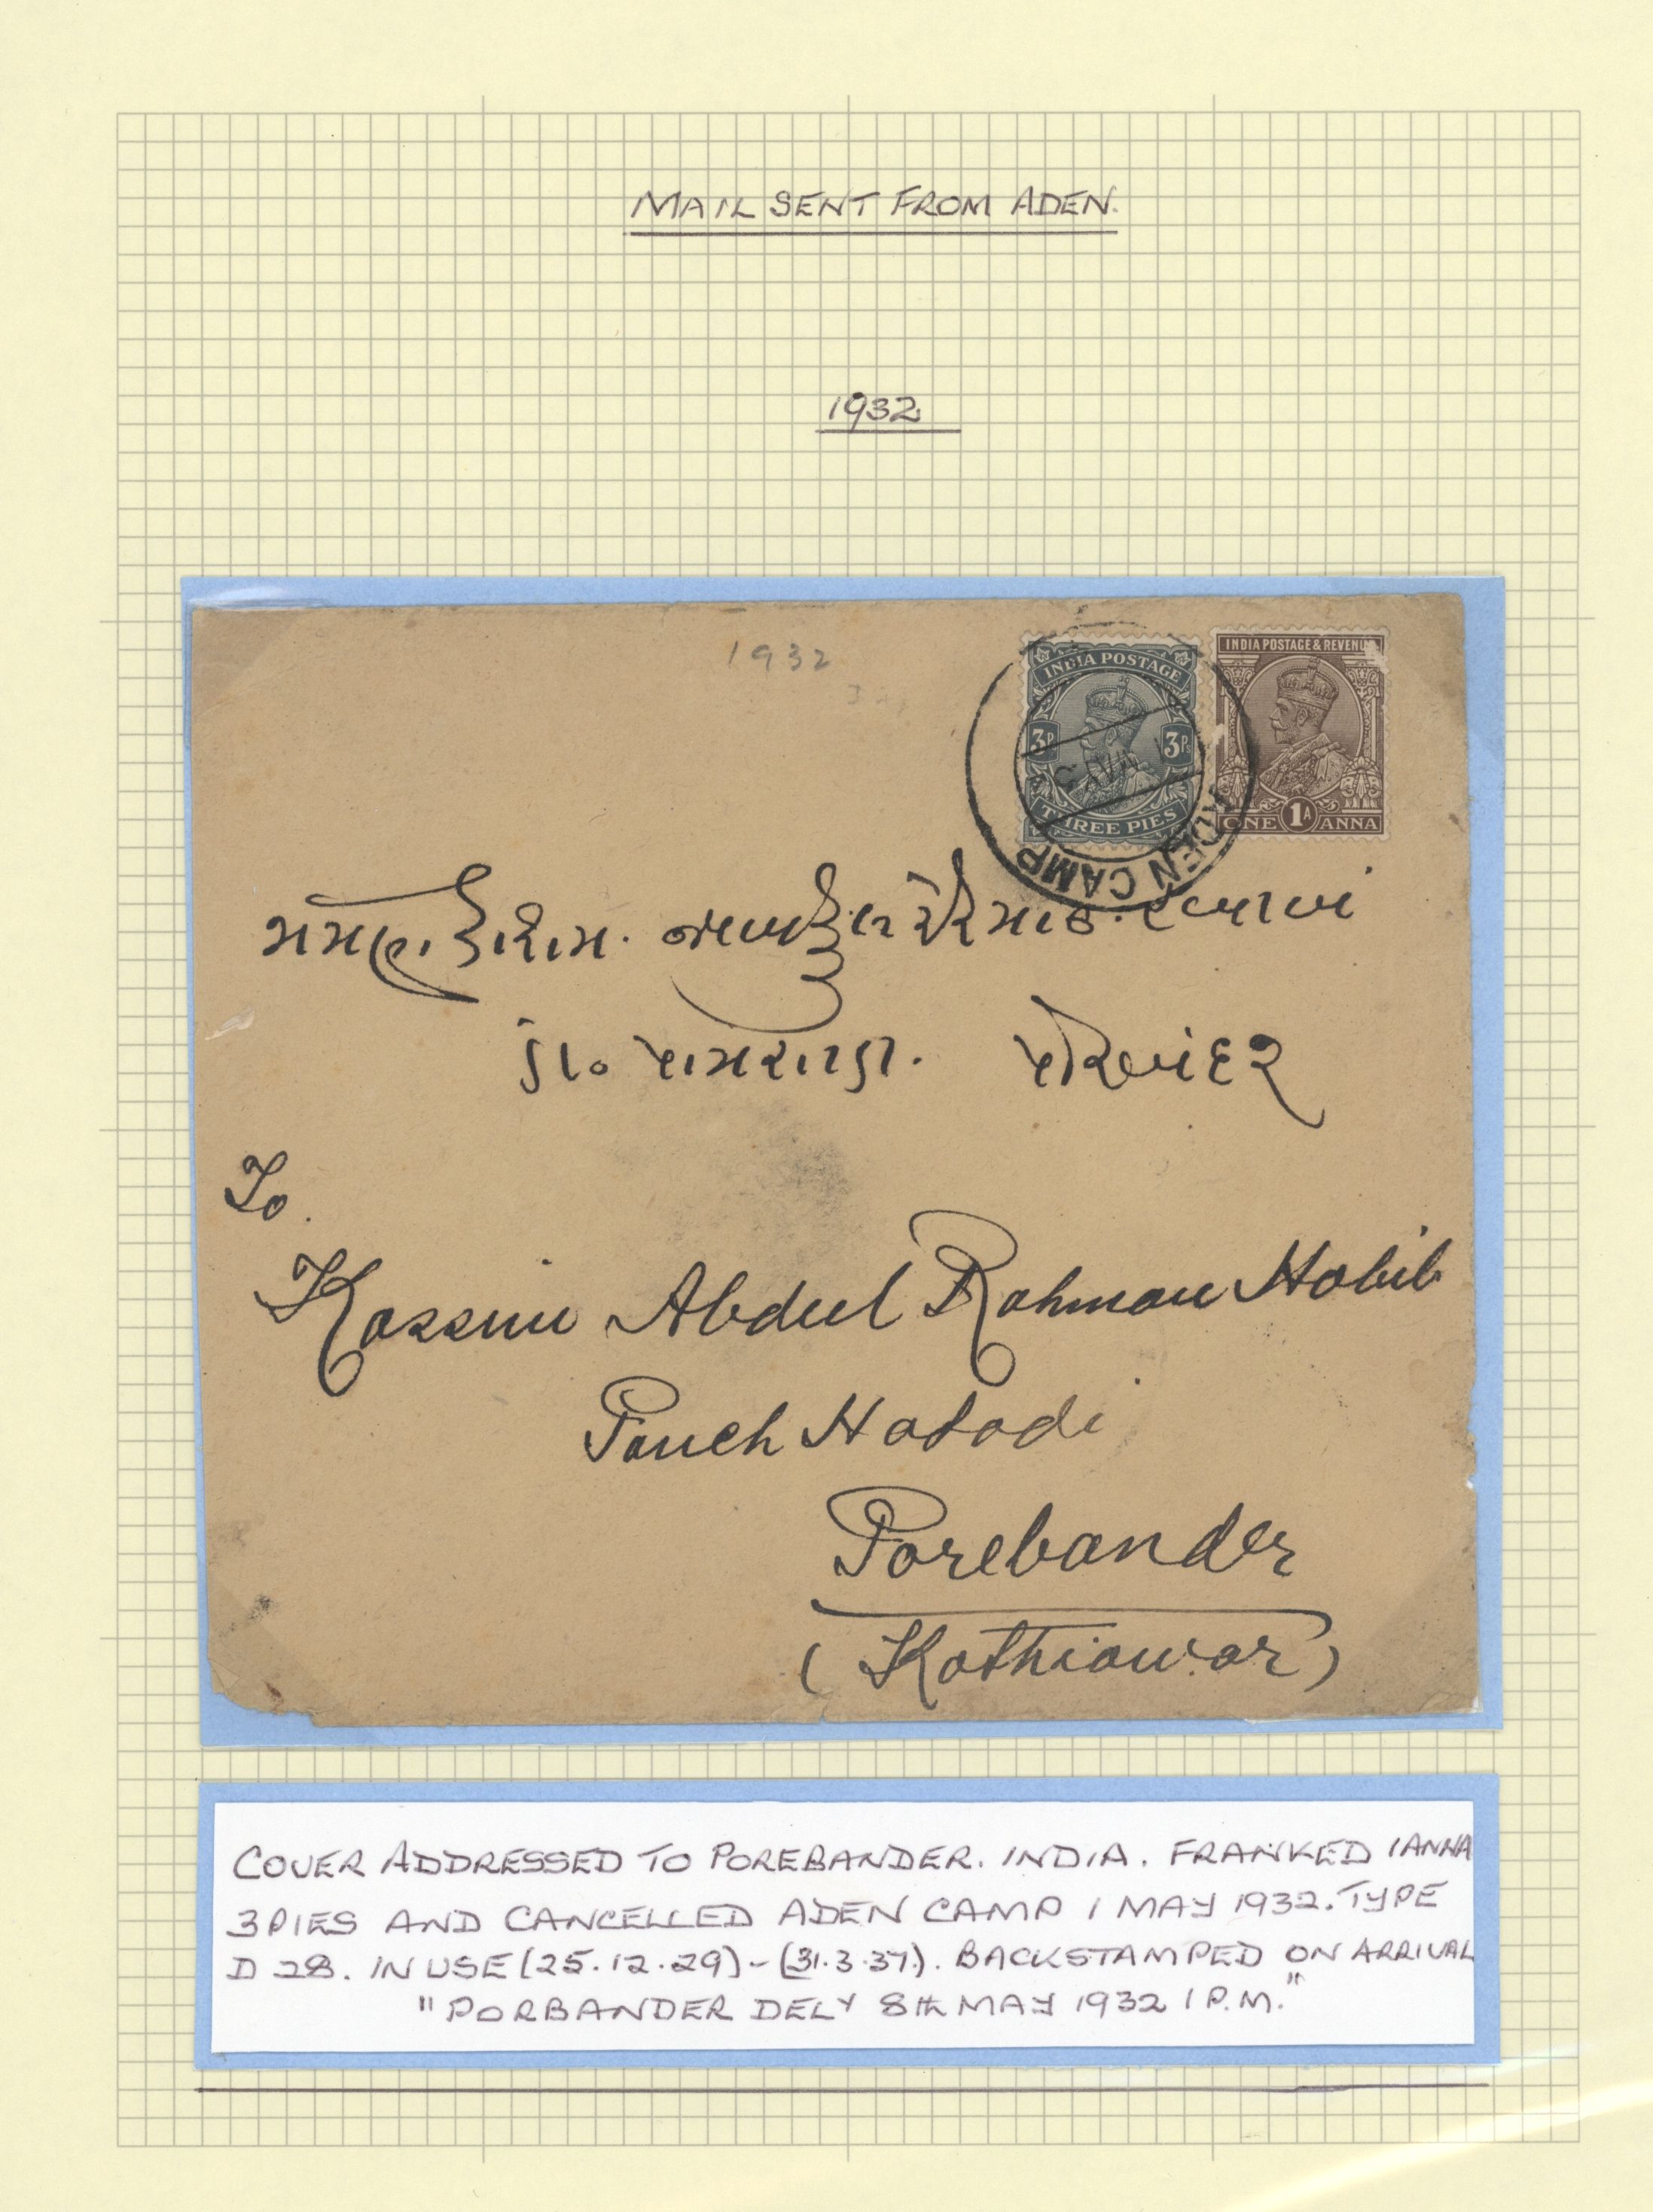 MAIL SENT FROM ADEN.
1932
1932
INDIA POSTAGE
3P. 3P.
THREE PIES
INDIA POSTAGE & REVENUE
ONE 1A ANNA
ADEN CAMP
1 MAY
ઠે૦ પોરબંદર
To.
Kassim Abdul Rahman Habib
Panch Hatadi
Porebander
(Kathiawar)
COVER ADDRESSED TO POREBANDER. INDIA. FRANKED 1 ANNA
3 PIES AND CANCELLED ADEN CAMP 1 MAY 1932. TYPE
D 28. IN USE (25.12.29) - (31.3.37). BACKSTAMPED ON ARRIVAL
"PORBANDER DELY 8th MAY 1932 1 P.M."